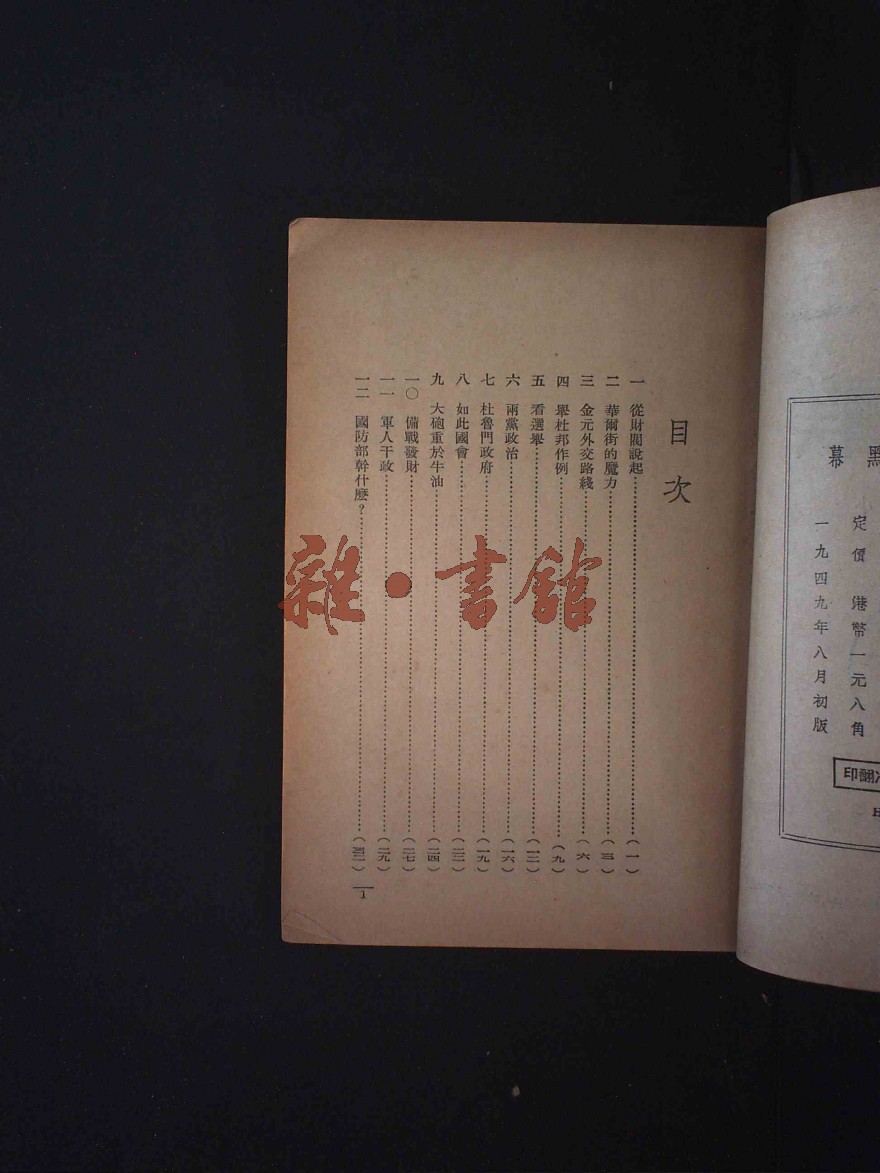 黑幕
定價 港幣一元八角
一九四九年八月初版
印翻
目次
一 從財閥說起(一)
二 華爾街的魔力(三)
三 金元外交路綫(六)
四 舉杜邦作例(九)
五 看選舉(一三)
六 兩黨政治(一六)
七 杜魯門政府(一九)
八 如此國會(二三)
九 大砲重於牛油(二四)
一〇 備戰發財(二七)
一一 軍人干政(二九)
一二 國防部幹什麼?
1
雜·書館